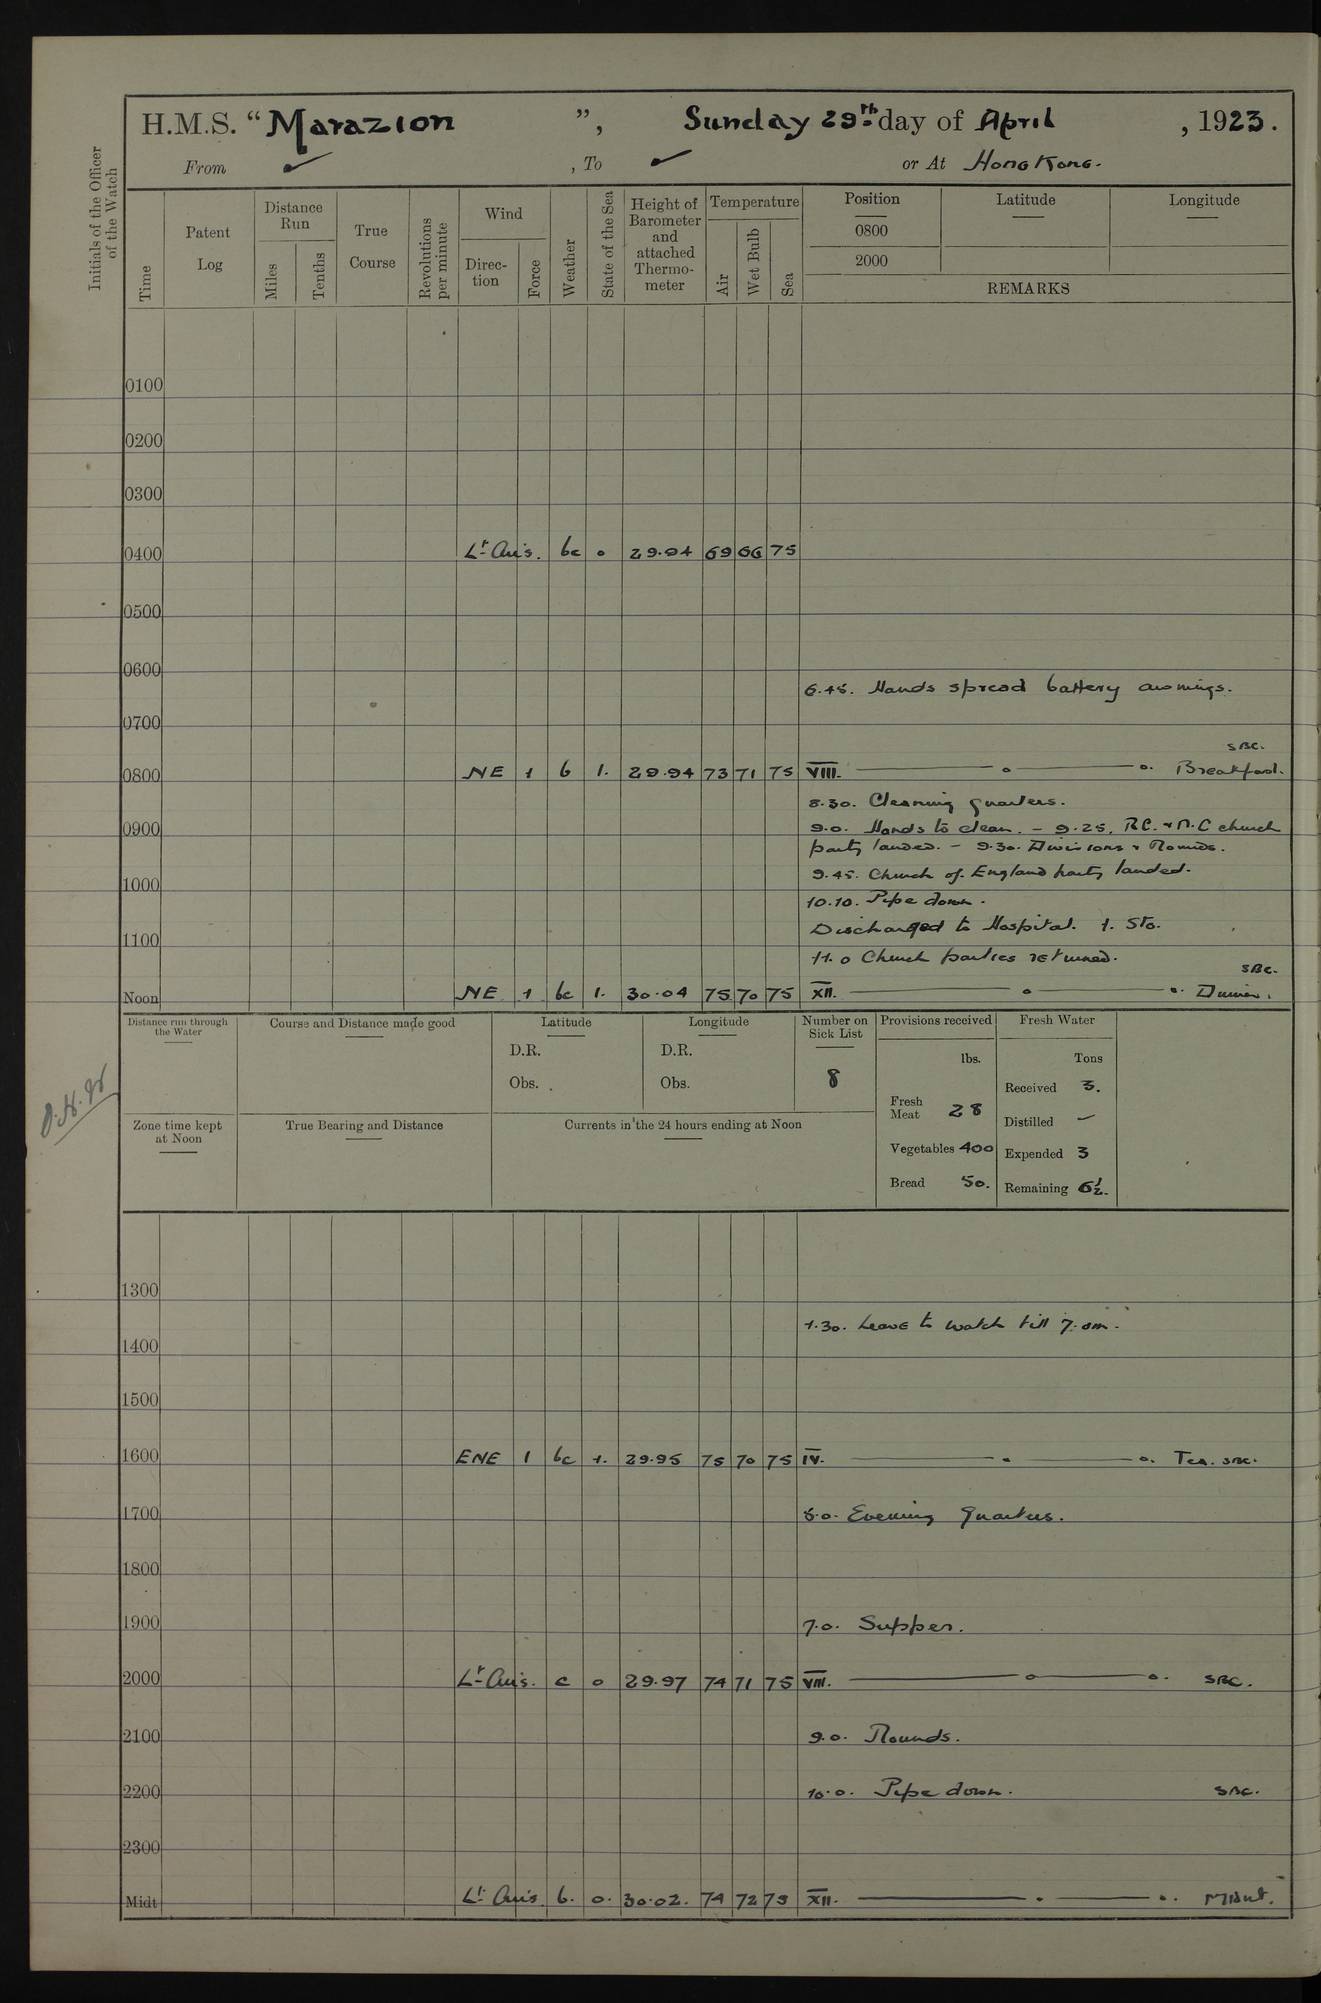 H.M.S. “Marazion”, Sunday 29th day of April, 1923.
From ✓, To ✓ or At Hong Kong.
Initials of the Officer of the Watch
Time
Patent Log
Distance Run
Miles
Tenths
True Course
Revolutions per minute
Wind
Direc-tion
Force
Weather
State of the Sea
Height of Barometer and attached Thermo-meter
Temperature
Air
Wet Bulb
Sea
Position
Latitude
Longitude
0800
2000
REMARKS
0100
0200
0300
0400 Lt Airs. bc 0 29.94 69 66 75
0500
0600
6.45. Hands spread battery awnings.
0700
SBC.
0800 NE 1 b 1. 29.94 73 71 75 VIII. — o — o. Breakfast.
8.30. Cleaning quarters.
0900 9.0. Hands to clean. – 9.25. R.C. & N.C church
party landed. – 9.30. Divisions & Rounds.
9.45. Church of England party landed.
1000
10.10. Pipe down.
Discharged to Hospital. 1. Sto.
1100
11.0 Church parties returned.
SBC.
Noon NE 1 bc 1. 30.04 75 70 75 XII. — o — o. Dinner.
Distance run through the Water
Course and Distance made good
Latitude
D.R.
Obs.
Longitude
D.R.
Obs.
Number on Sick List
8
Provisions received
lbs.
Fresh Meat 28
Vegetables 400
Bread 50.
Fresh Water
Tons
Received 3.
Distilled –
Expended 3
Remaining 6½.
Zone time kept at Noon
True Bearing and Distance
Currents in the 24 hours ending at Noon
1300
1.30. Leave to watch till 7. am.
1400
1500
1600 ENE 1 bc 1. 29.95 75 70 75 IV. — o — o. Tea. SBC.
1700 5.0. Evening Quarters.
1800
1900 7.0. Supper.
2000 Lt Airs. c 0 29.97 74 71 75 VIII. — o — o. SBC.
2100 9.0. Rounds.
2200 10.0. Pipe down. SBC.
2300
Midt Lt Airs b. 0. 30.02. 74 72 75 XII. — o — o.